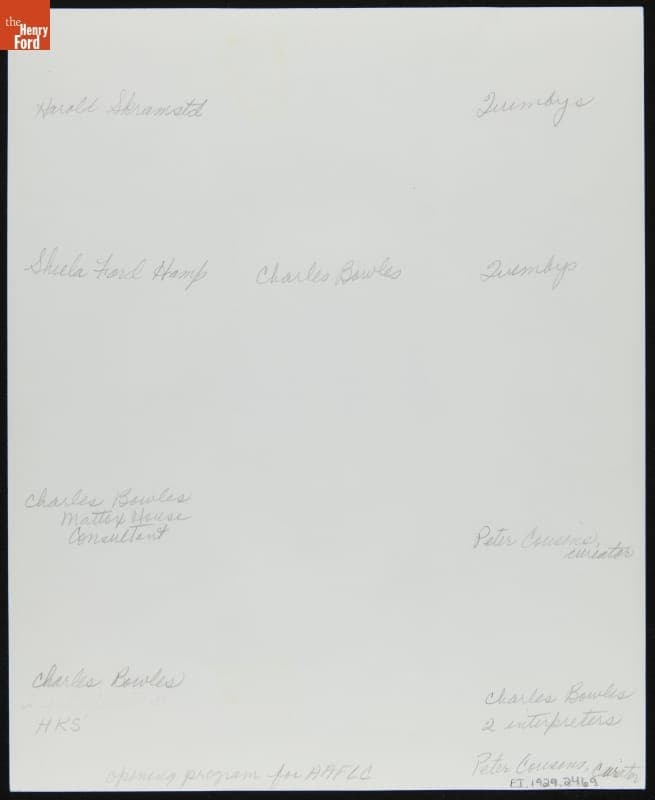 the
Henry
Ford
Harold Skramstd
Quimbys
Sheila Ford Hamp
Charles Bowles
Quimbys
Charles Bowles
Mattox House
Consultant
Peter Cousins,
curator
Charles Bowles
HKS
Charles Bowles
2 interpreters
opening program for AAFLC
Peter Cousins, Curator
EI.1929.2469